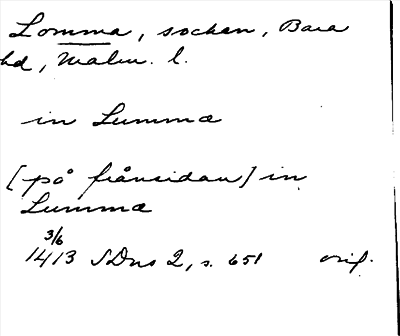 Lomma, socken, Bara
hd, Malm. l.
in Lummæ
[på frånsidan] in
Lummæ
3/6
1413 SDns 2, s. 651 orig.